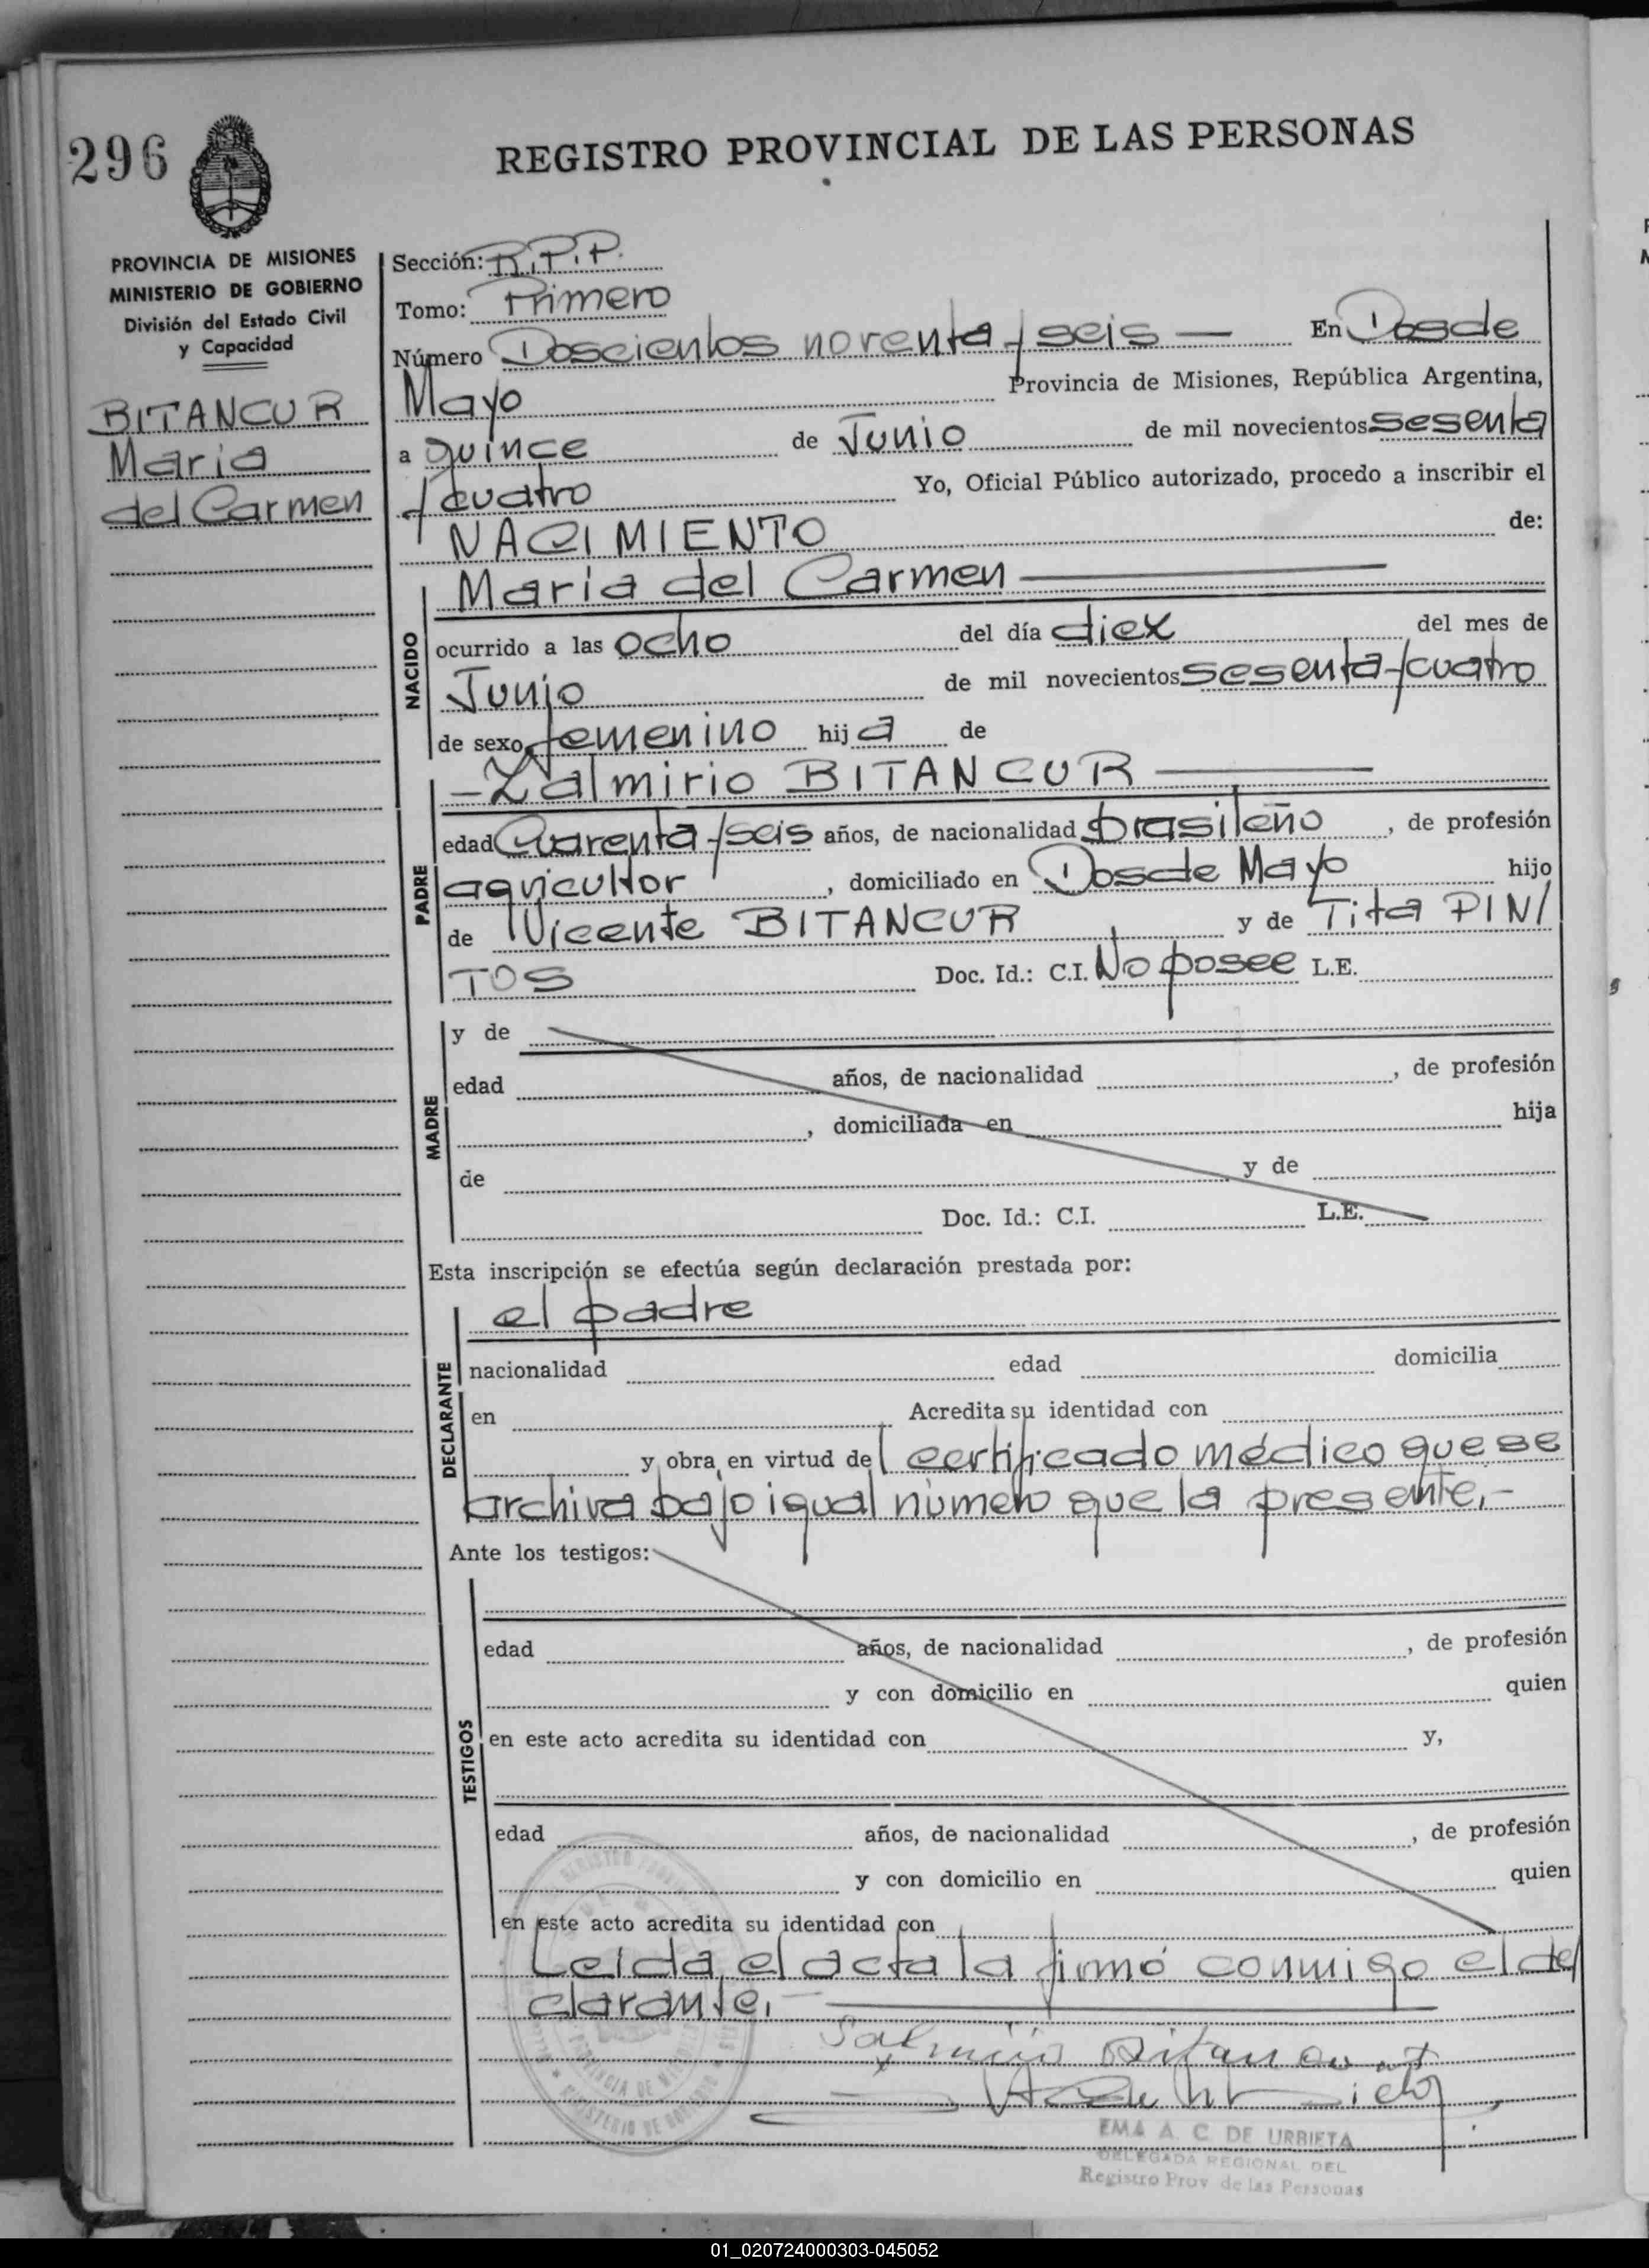 296
REGISTRO PROVINCIAL DE LAS PERSONAS
PROVINCIA DE MISIONES
MINISTERIO DE GOBIERNO
División del Estado Civil
y Capacidad
BITANCUR
Maria
del Carmen
Sección: R.P.P.
Tomo: Primero
Número Doscientos noventa y seis — En Dos de
Mayo Provincia de Misiones, República Argentina,
a quince de Junio de mil novecientos sesenta
y cuatro Yo, Oficial Público autorizado, procedo a inscribir el
NACIMIENTO de:
NACIDO
Maria del Carmen —
ocurrido a las ocho del día diex del mes de
Junio de mil novecientos sesenta y cuatro
de sexo femenino hija de
PADRE
- Zalmirio BITANCUR —
edad Cuarenta y seis años, de nacionalidad brasileño, de profesión
agricultor, domiciliado en Dos de Mayo hijo
de Vicente BITANCUR y de Tita PIN/
TOS Doc. Id.: C.I. No posee L.E.
MADRE
y de
edad años, de nacionalidad , de profesión
, domiciliada en hija
de y de
Doc. Id.: C.I. L.E.
Esta inscripción se efectúa según declaración prestada por:
DECLARANTE
el padre
nacionalidad edad domicilia
en Acredita su identidad con
y obra en virtud del certificado médico que se
archiva bajo igual número que la presente.-
Ante los testigos:
TESTIGOS
edad años, de nacionalidad , de profesión
y con domicilio en quien
en este acto acredita su identidad con y,
edad años, de nacionalidad , de profesión
y con domicilio en quien
en este acto acredita su identidad con
Leida el acta la firmó conmigo el de/
clarante.- —
Salmirio Bitancurt
EMA A. C. DE URBIETA
DELEGADA REGIONAL DEL
Registro Prov de las Personas
01_020724000303-045052